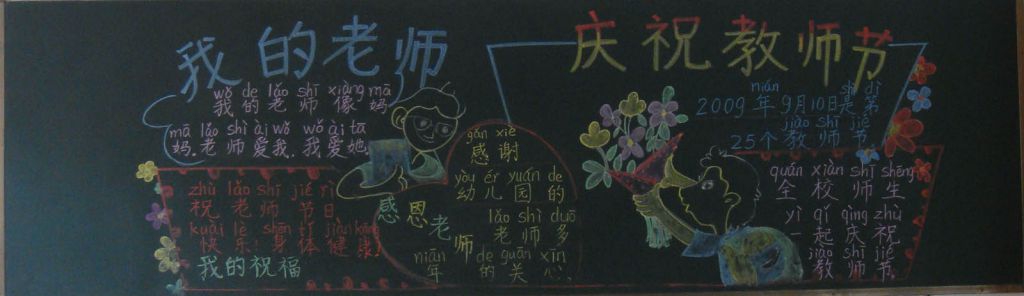 我的老师
wǒ de lǎo shī xiàng mā
我的老师像妈
mā lǎo shì ài wǒ wǒ ài tā
妈.老师爱我.我爱她.
zhù lǎo shī jié rì
祝老师节日
kuài lè shēn tǐ jiàn kāng
快乐!身体健康!
我的祝福
gǎn xiè
感谢
yòu ér yuán de
幼儿园的
lǎo shì duō
老师多
nián de guān xīn
年的关心.
感恩老师
庆祝教师节
nián shì dì
2009年9月10日是第
jiào shī jié
25个教师节
quán xiàn shī shēng
全校师生
yì qǐ qìng zhù
一起庆祝
jiào shī jié
教师节.